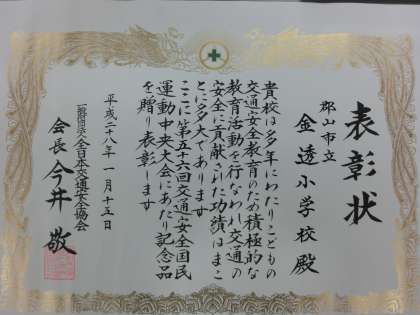 表彰状
郡山市立
金透小学校殿
貴校は多年にわたりこどもの
交通安全教育のため積極的な
教育活動を行なわれ交通の
安全に貢献された功績はまこ
とに多大であります
ここに第五十六回交通安全国民
運動中央大会にあたり記念品
を贈り表彰します
平成二十八年一月十五日
一般財団法人全日本交通安全協会
会長 今井敬